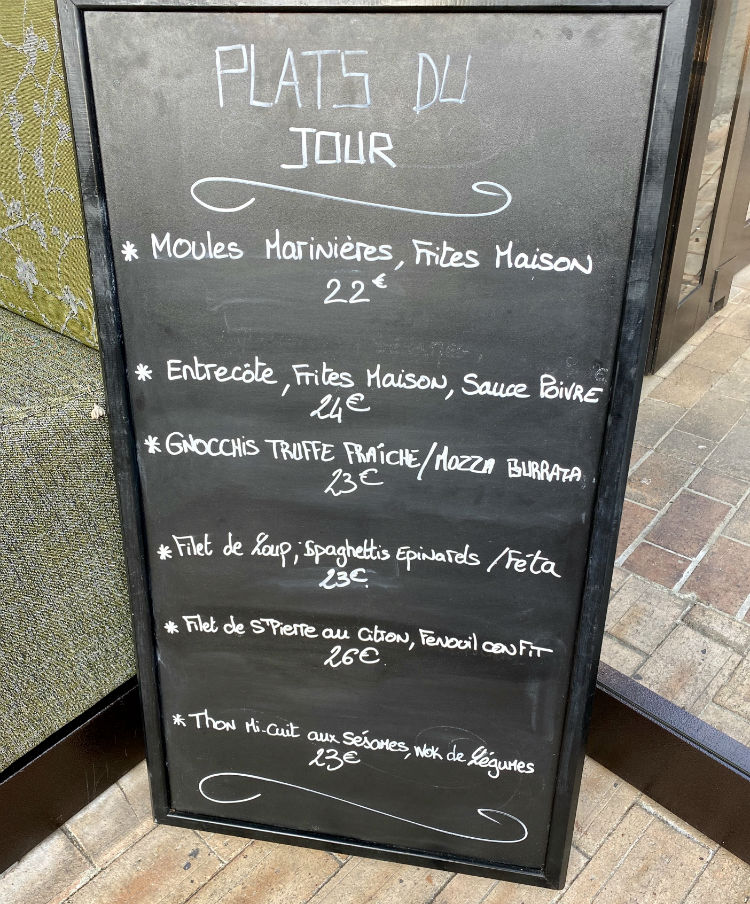 PLATS DU
JOUR
* Moules Marinières, Frites Maison
22€
* Entrecôte, Frites Maison, Sauce POIVRE
24€
* GNOCCHIS TRUFFE FRAÎCHE/MOZZA BURRATA
23€
* Filet de Loup, Spaghettis Epinards /Féta
23€
* Filet de St Pierre au Citron, Fenouil conFiT
26€
* Thon Mi-Cuit aux Sésames, Wok de Légumes
23€